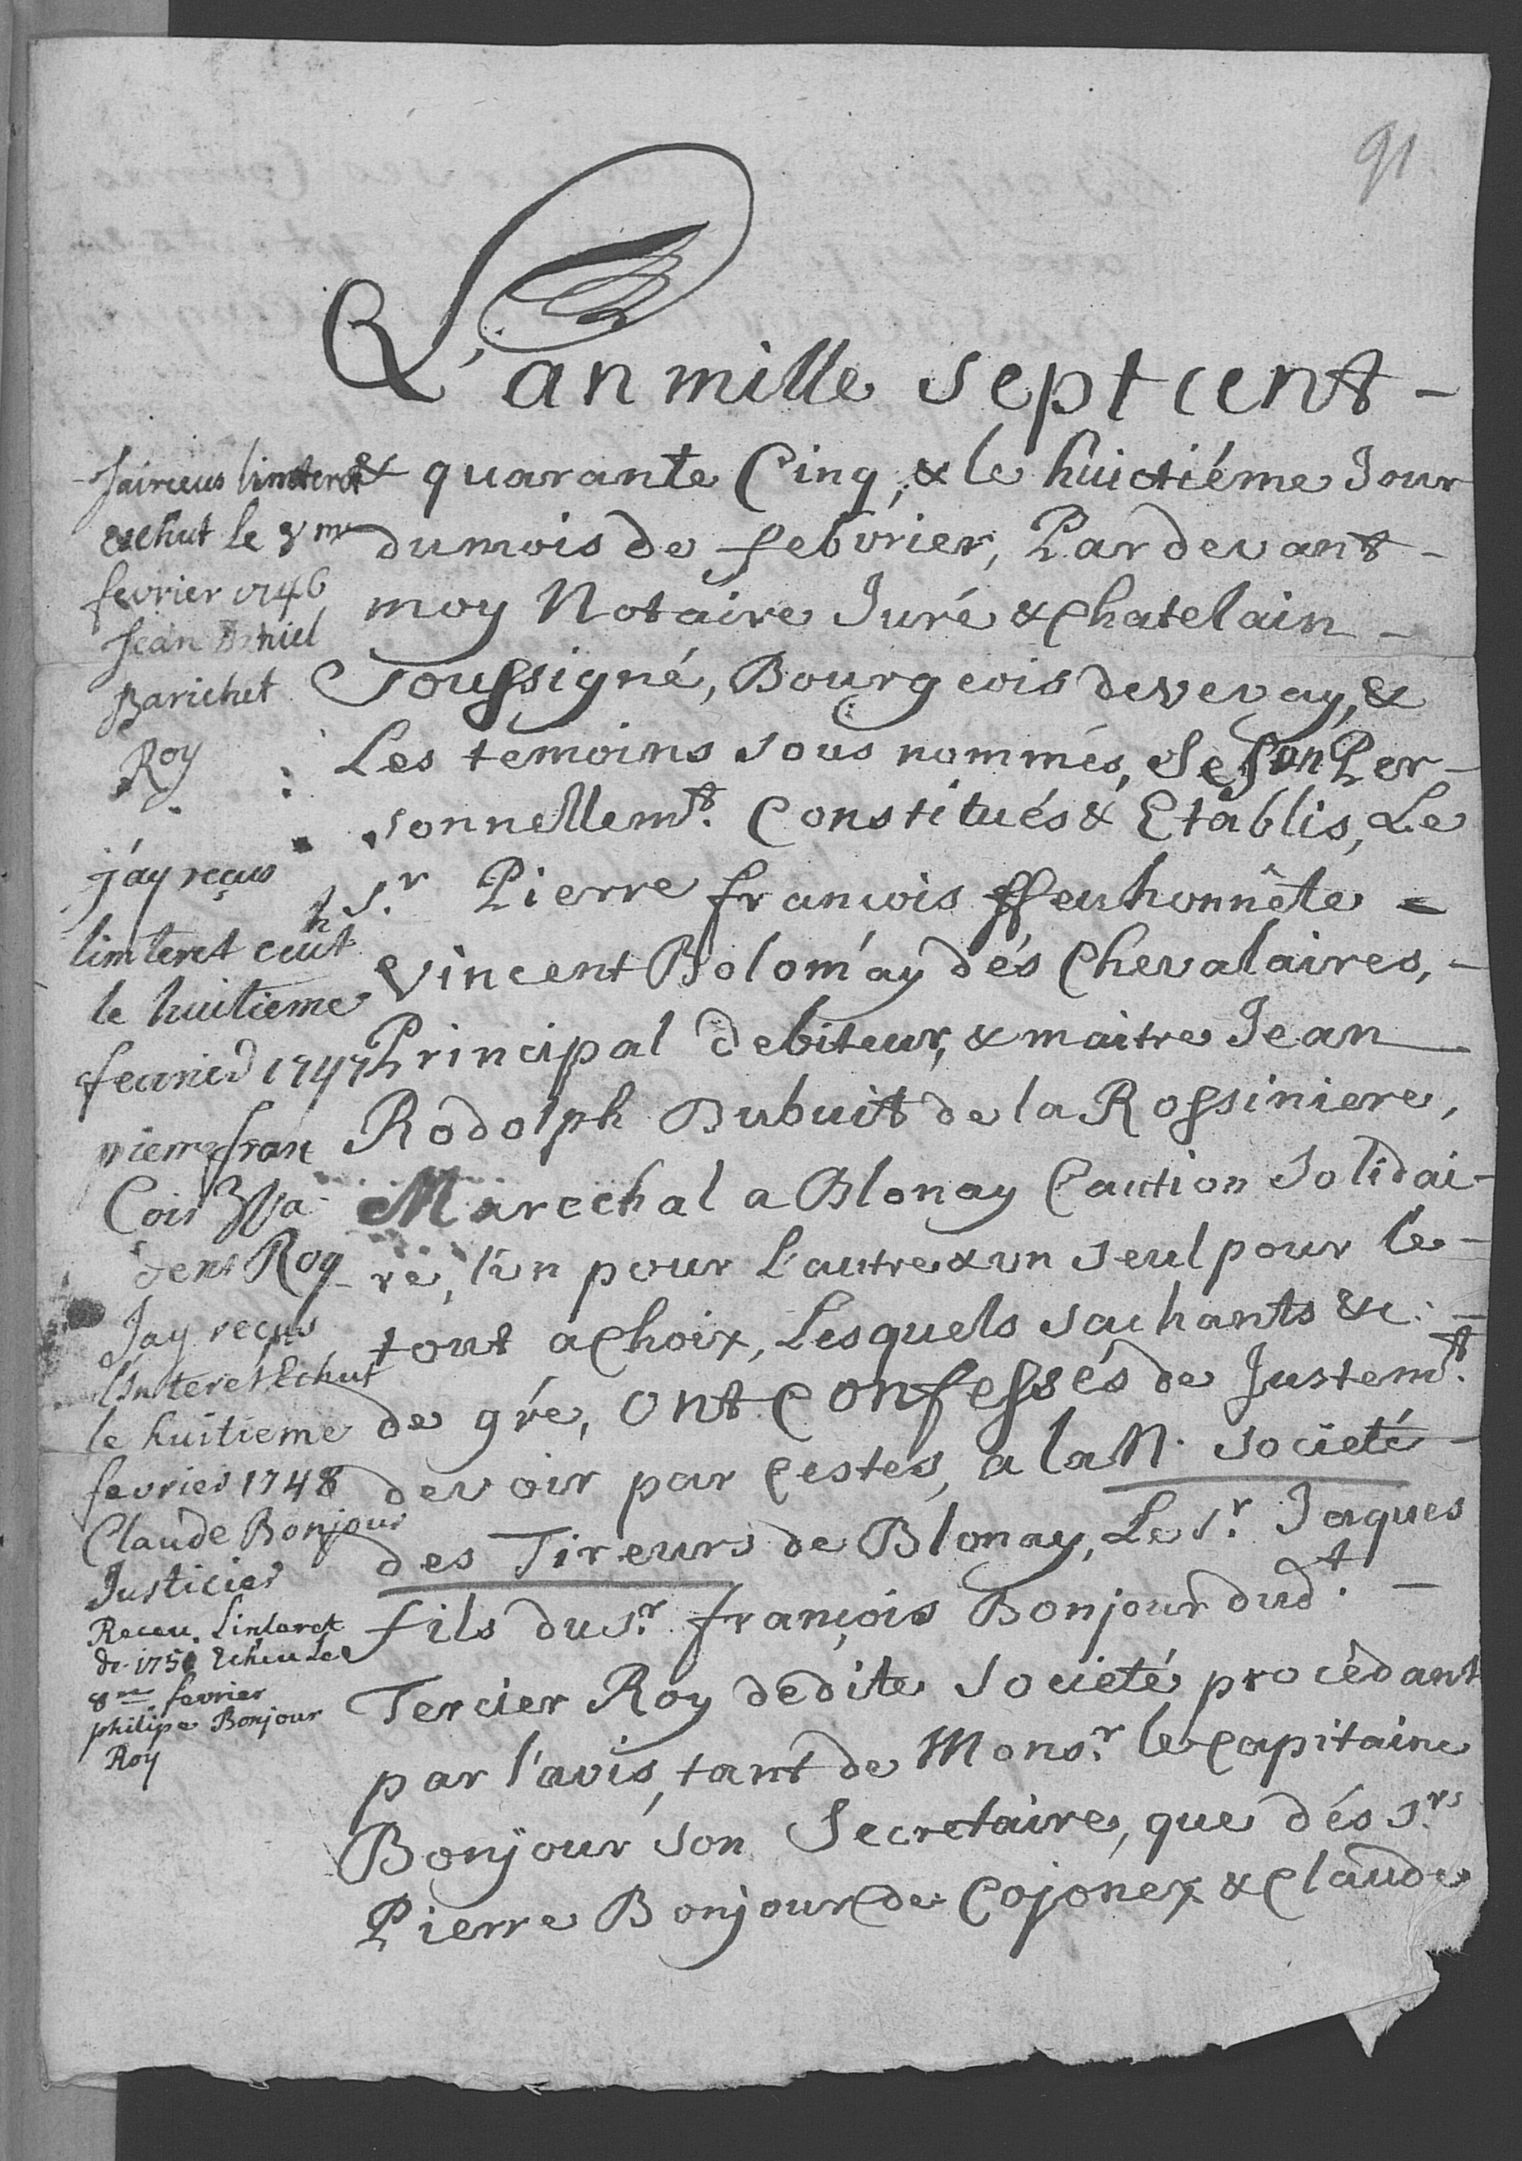 91
L'an mille sept cent -
& quarante Cinq, & le huictiéme Jour
du mois de febvrier, Pardevant -
moy Notaire Juré & Chatelain -
Soussigné, Bourgeois de vevay, &
Les temoins sous nommés, Se son Per-
sonnellemt. Constitués & Etablis, Le
Sr. Pierre françois ffeu honnête =
Vincent Bolomay dés Chevalaires, -
Principal debiteur, & maitre Jean
Rodolph Dubuit de la Rossiniere,
Marechal a Blonay Caution Solidai-
re, l'un pour L'autre & un seul pour le -
tout a Choix, Lesquels sachants &c: -
de gré, Ont Confessés de Justemt.
devoir par Cestes, a la N. Societé -
des Tireurs de Blonay, Le Sr. Jaques
fils du Sr. françois Bonjour dudt. -
Tercier Roy dedite Societé procêdant
par l'avis, tant de Monsr. le Capitaine
Bonjour son Secretaire, que dés Srs
Pierre Bonjour de Cojonex & Claude
Jai receus linteret
eschut le 8me
fevrier 1746
Jean Daniel
Barichet
Roy
j'ay reçus
linteret ceut
le huitieme
feavried 1747
pierre fran
Cois
dens Roy
Jay reçus
l'Interet Echut
le huitieme
fevrier 1748
Claude Bonjour
Justicier
Receu Linteret
de 1750 Echeu Le
8me fevrier
philipe Bonjour
Roy